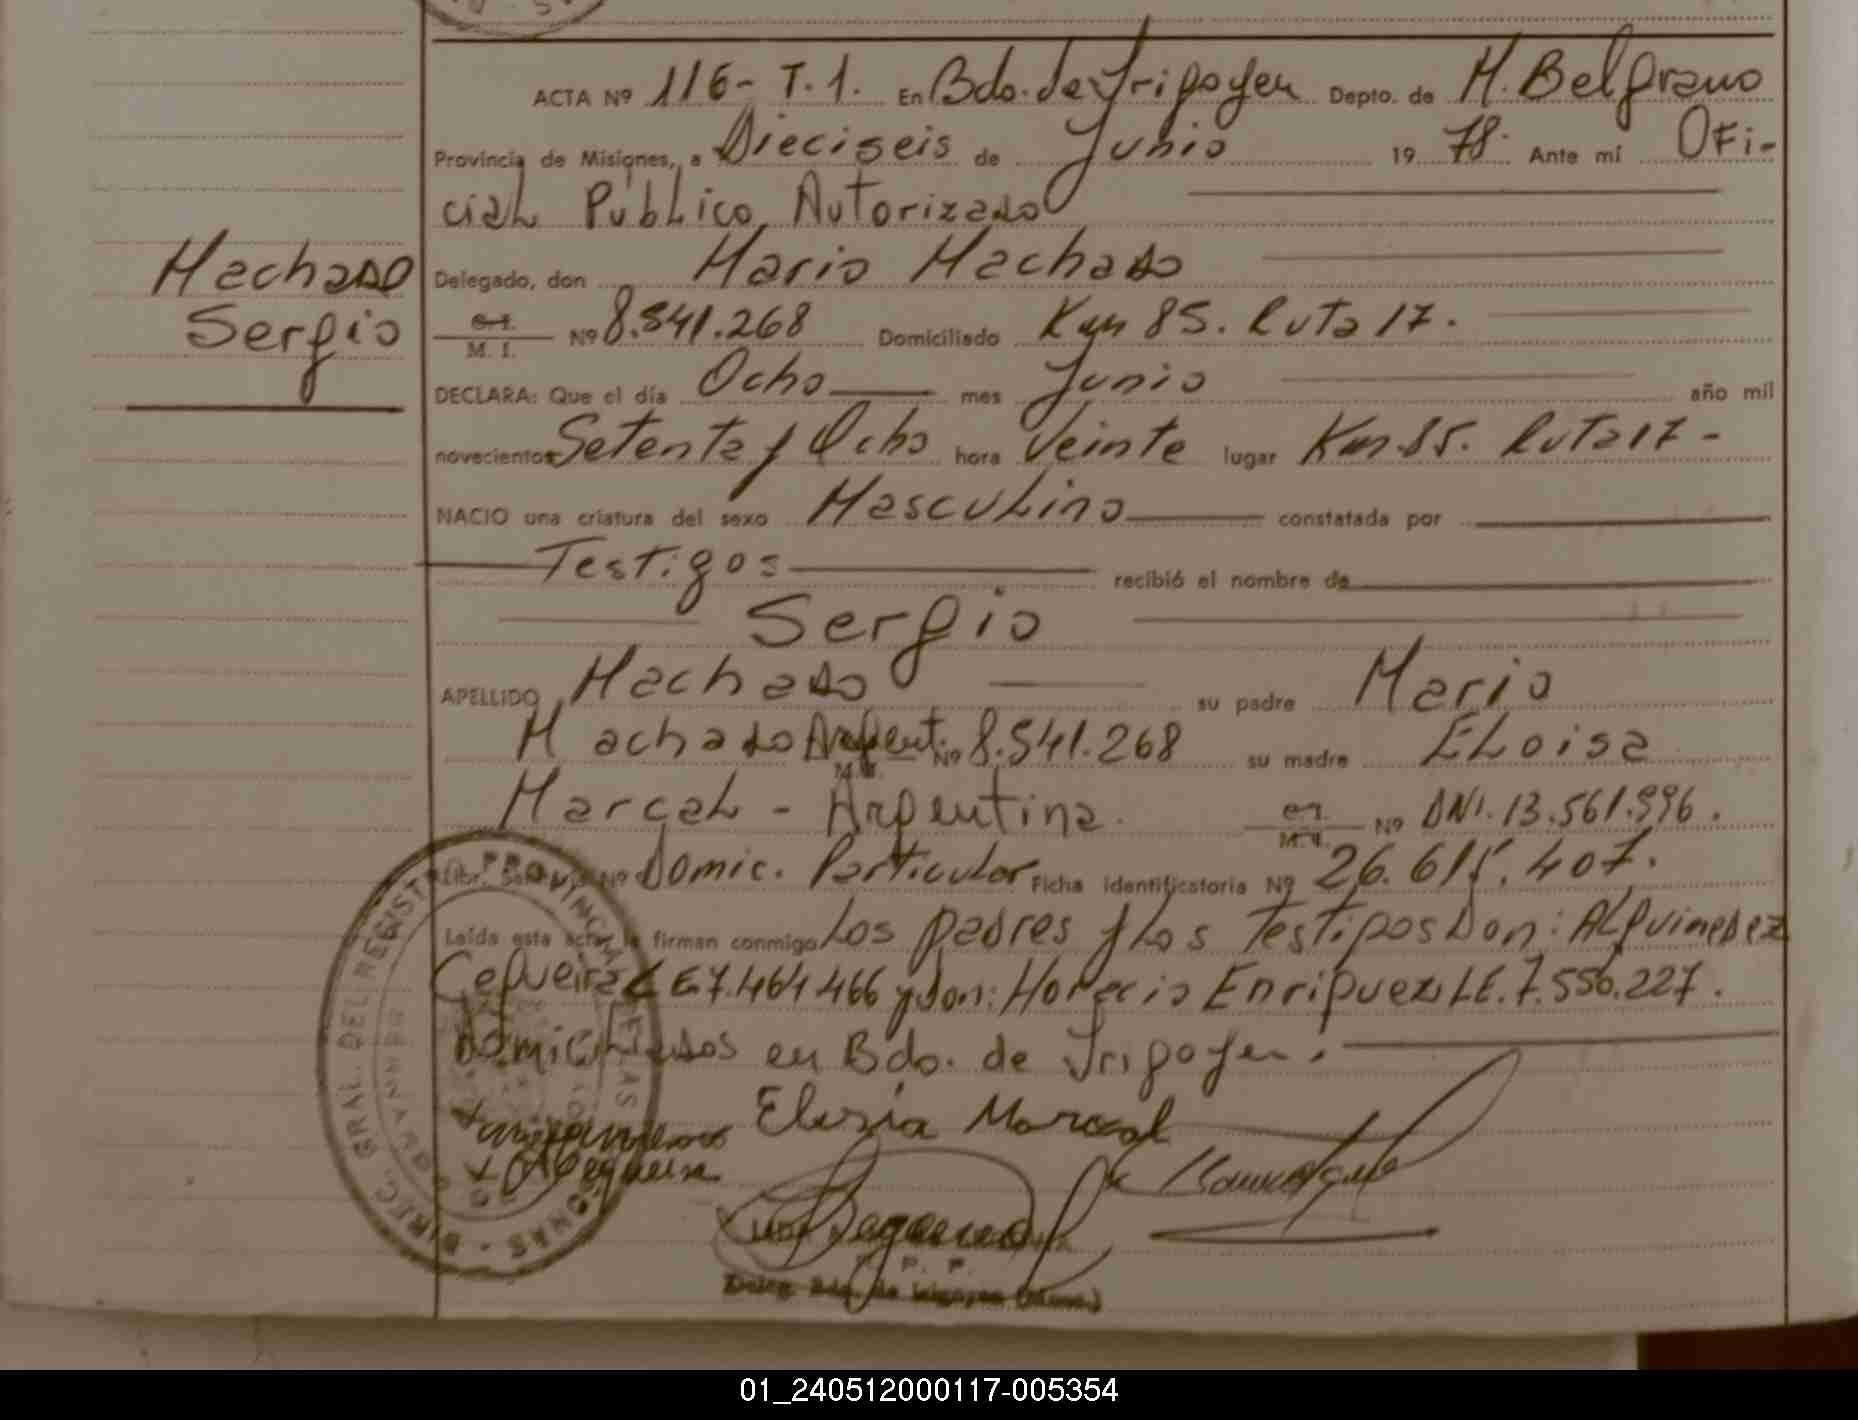 ACTA Nº 116- T.1. En Bdo. de Yrigoyen Depto. de M. Belgrano
Provincia de Misiones, a Dieciseis de Junio 19 78. Ante mí Ofi-
cial Público Autorizado
Machado
Sergio
Delegado, don Mario Machado
C.I. M. I. Nº 8.541.268 Domiciliado Km 85. Ruta 17.
DECLARA: Que el día Ocho mes Junio año mil
novecientos Setenta y Ocho hora Veinte lugar Km.85. Ruta 17-
NACIO una criatura del sexo Masculino constatada por
Testigos recibió el nombre de
Sergio
APELLIDO Machado su padre Mario
Machado Argent. Nº 8.541.268 su madre Eloisa
Marcal - Argentina. C.I. M.I. Nº DNI. 13.561.996.
Nº Domic. Particular Ficha identificatoria Nº 26.615.407.
Leída esta acta, la firman conmigo Los padres y Los Testigos Don: Alquimedez
Cequeira L E.7.464.466 y don: Horacio Enriquez LE. 7.556.227.
Domiciliados en Bdo. de Yrigoyen.
Elezia Marcal
DIREC. GRAL. DEL REGISTRO PROVINCIAL DE LAS PERSONAS
P. P.
Deleg. Bdo. de Irigoyen (Mnes.)
01_240512000117-005354